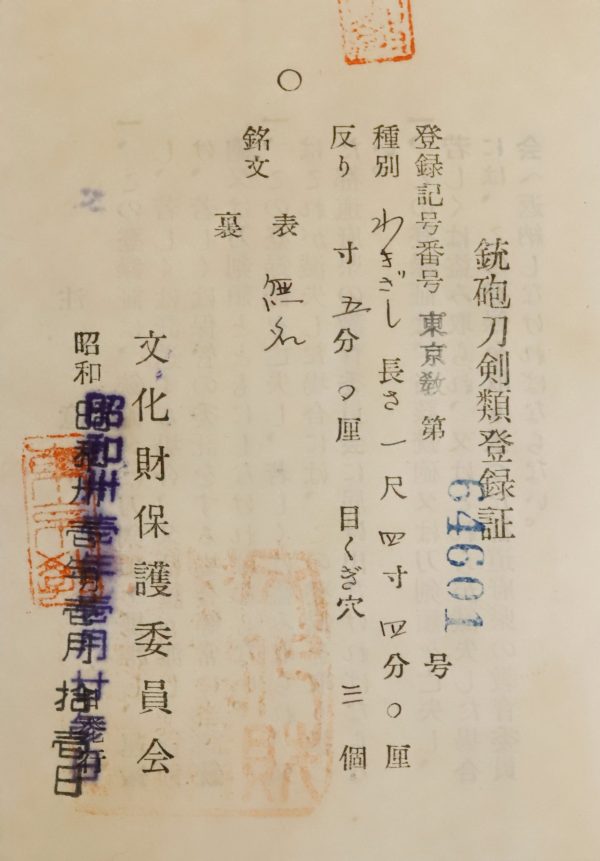 銃砲刀剣類登録証
登録記号番号 東京教 第 64601 号
種別 わきざし 長さ 一尺四寸四分〇厘
反り 寸五分〇厘 目くぎ穴 三個
銘文 表 無名
裏
文化財保護委員会
昭和
昭和卅壱年壱月
拾壱日